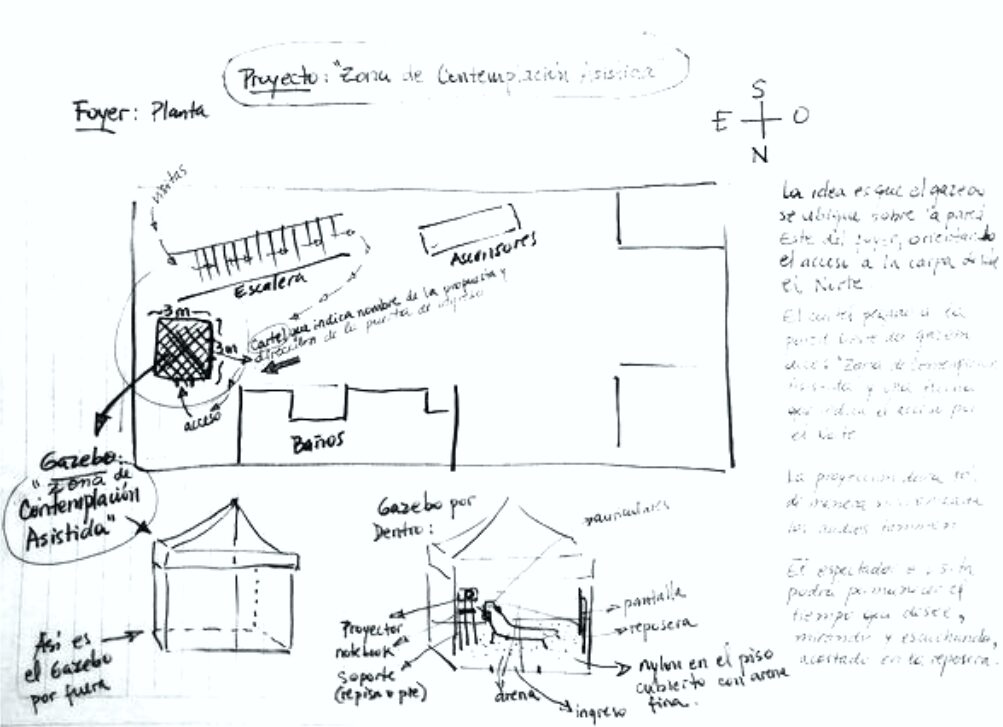 Proyecto: "Zona de Contemplación Asistida"
Foyer: Planta
S
E O
N
visitas
Escalera
Ascensores
3m
3m
Cartel que indica nombre de la propuesta y
dirección de la puerta de ingreso
acceso
Baños
Gazebo:
"Zona de
Contemplación
Asistida"
Así es
el Gazebo
por fuera
Gazebo por
Dentro:
auriculares
Proyector
notebook
soporte
(repisa o pie)
pantalla
reposera
nylon en el piso
cubierto con arena
fina.
arena
ingreso
La idea es que el gazebo
se ubique sobre la pared
Este del foyer, orientando
el acceso a la carpa desde
el Norte
El cartel
"Zona de Contemplación
Asistida" y una flecha
que indica el acceso por
el Norte
La proyección
de manera
El espectador
podrá permanecer el
tiempo que desee,
mirando y escuchando,
acostado en la reposera.